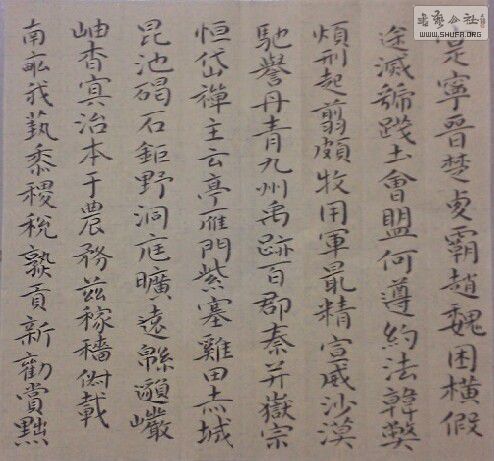 寔寧晉楚更霸趙魏困橫假
途滅虢踐土會盟何遵約法韓弊
煩刑起翦頗牧用軍最精宣威沙漠
馳譽丹青九州禹跡百郡秦并嶽宗
恒岱禪主云亭雁門紫塞雞田赤城
昆池碣石鉅野洞庭曠遠緜邈巖
岫杳冥治本于農務茲稼穡俶載
南畝我藝黍稷稅熟貢新勸賞黜
书艺公社
WWW.SHUFA.ORG